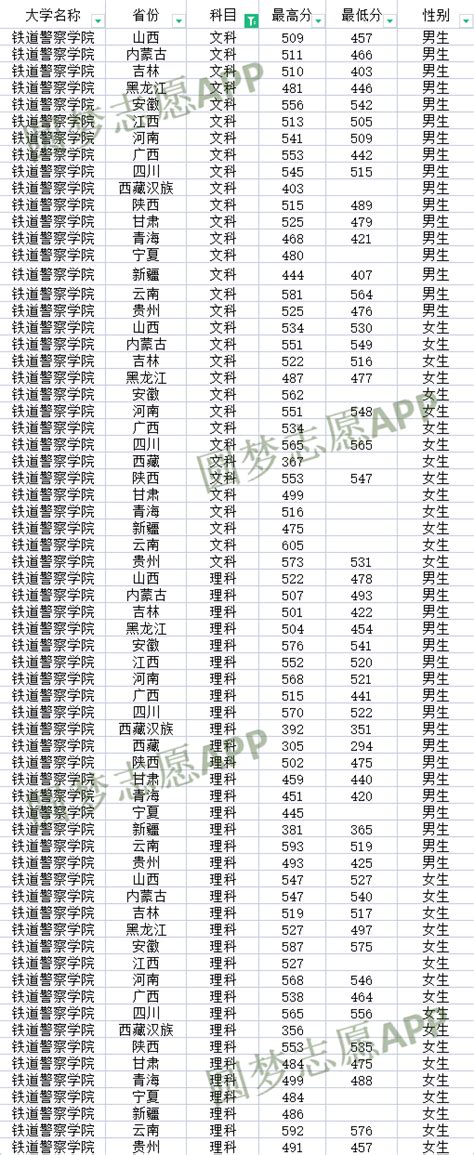 大学名称 省份 科目 最高分 最低分 性别
铁道警察学院 山西 文科 509 457 男生
铁道警察学院 内蒙古 文科 511 466 男生
铁道警察学院 吉林 文科 510 403 男生
铁道警察学院 黑龙江 文科 481 446 男生
铁道警察学院 安徽 文科 556 542 男生
铁道警察学院 江西 文科 513 505 男生
铁道警察学院 河南 文科 541 509 男生
铁道警察学院 广西 文科 553 442 男生
铁道警察学院 四川 文科 545 515 男生
铁道警察学院 西藏汉族 文科 403 男生
铁道警察学院 陕西 文科 515 489 男生
铁道警察学院 甘肃 文科 525 479 男生
铁道警察学院 青海 文科 468 421 男生
铁道警察学院 宁夏 文科 480 男生
铁道警察学院 新疆 文科 444 407 男生
铁道警察学院 云南 文科 581 564 男生
铁道警察学院 贵州 文科 525 476 男生
铁道警察学院 山西 文科 534 530 女生
铁道警察学院 内蒙古 文科 551 549 女生
铁道警察学院 吉林 文科 522 516 女生
铁道警察学院 黑龙江 文科 487 477 女生
铁道警察学院 安徽 文科 562 女生
铁道警察学院 河南 文科 551 548 女生
铁道警察学院 广西 文科 534 女生
铁道警察学院 四川 文科 565 565 女生
铁道警察学院 西藏 文科 367 女生
铁道警察学院 陕西 文科 553 547 女生
铁道警察学院 甘肃 文科 499 女生
铁道警察学院 青海 文科 516 女生
铁道警察学院 新疆 文科 475 女生
铁道警察学院 云南 文科 605 女生
铁道警察学院 贵州 文科 573 531 女生
铁道警察学院 山西 理科 522 478 男生
铁道警察学院 内蒙古 理科 507 493 男生
铁道警察学院 吉林 理科 501 422 男生
铁道警察学院 黑龙江 理科 504 454 男生
铁道警察学院 安徽 理科 576 541 男生
铁道警察学院 江西 理科 552 520 男生
铁道警察学院 河南 理科 568 521 男生
铁道警察学院 广西 理科 515 441 男生
铁道警察学院 四川 理科 570 522 男生
铁道警察学院 西藏汉族 理科 392 351 男生
铁道警察学院 西藏 理科 305 294 男生
铁道警察学院 陕西 理科 502 475 男生
铁道警察学院 甘肃 理科 459 440 男生
铁道警察学院 青海 理科 451 420 男生
铁道警察学院 宁夏 理科 445 男生
铁道警察学院 新疆 理科 381 365 男生
铁道警察学院 云南 理科 593 519 男生
铁道警察学院 贵州 理科 493 425 男生
铁道警察学院 山西 理科 547 527 女生
铁道警察学院 内蒙古 理科 547 540 女生
铁道警察学院 吉林 理科 519 517 女生
铁道警察学院 黑龙江 理科 527 497 女生
铁道警察学院 安徽 理科 587 575 女生
铁道警察学院 江西 理科 527 女生
铁道警察学院 河南 理科 568 546 女生
铁道警察学院 广西 理科 538 464 女生
铁道警察学院 四川 理科 565 556 女生
铁道警察学院 西藏汉族 理科 356 女生
铁道警察学院 陕西 理科 553 535 女生
铁道警察学院 甘肃 理科 484 475 女生
铁道警察学院 青海 理科 499 488 女生
铁道警察学院 宁夏 理科 484 女生
铁道警察学院 新疆 理科 486 女生
铁道警察学院 云南 理科 592 576 女生
铁道警察学院 贵州 理科 491 457 女生
圆梦志愿APP
圆梦志愿APP
圆梦志愿APP
圆梦志愿APP